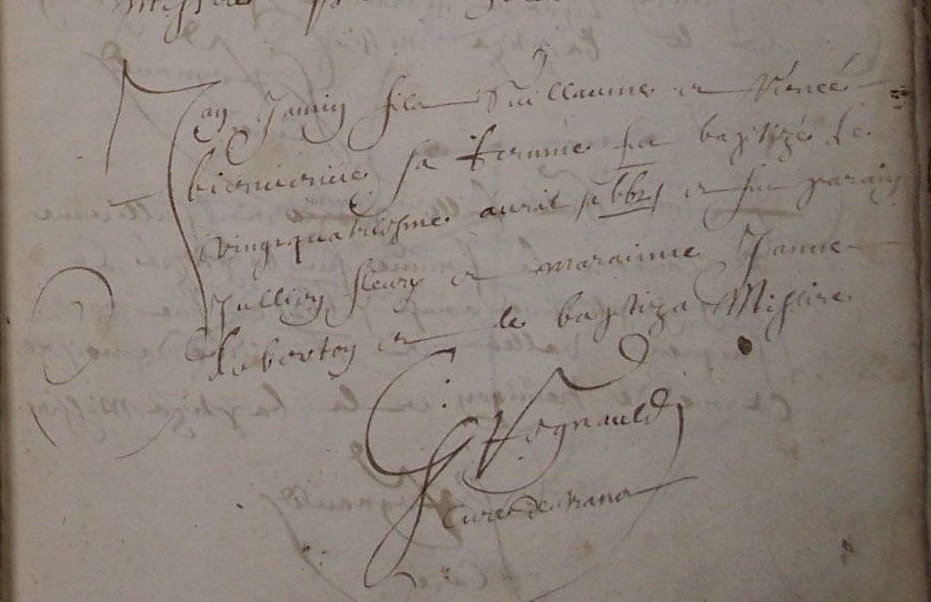 Jan Jamin filz Guillaume et Renée
sa femme fut baptizé le
vingtquatriesme auril et fut parain
Jullian fleury et maraine Janne
Huberton et le baptiza Missire
G Regnauld
Curé de